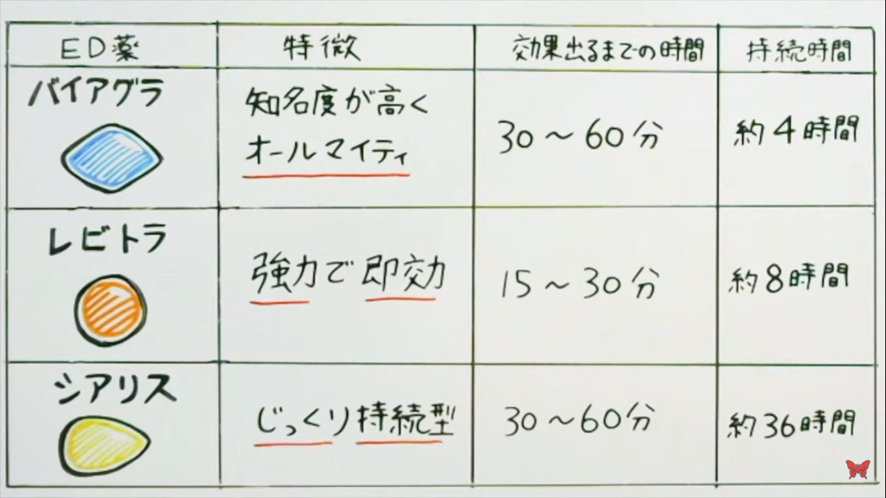 ED薬 特徴 効果出るまでの時間 持続時間
バイアグラ
知名度が高く
オールマイティ
30～60分
約4時間
レビトラ
強力で即効
15～30分
約8時間
シアリス
じっくり持続型
30～60分
約36時間